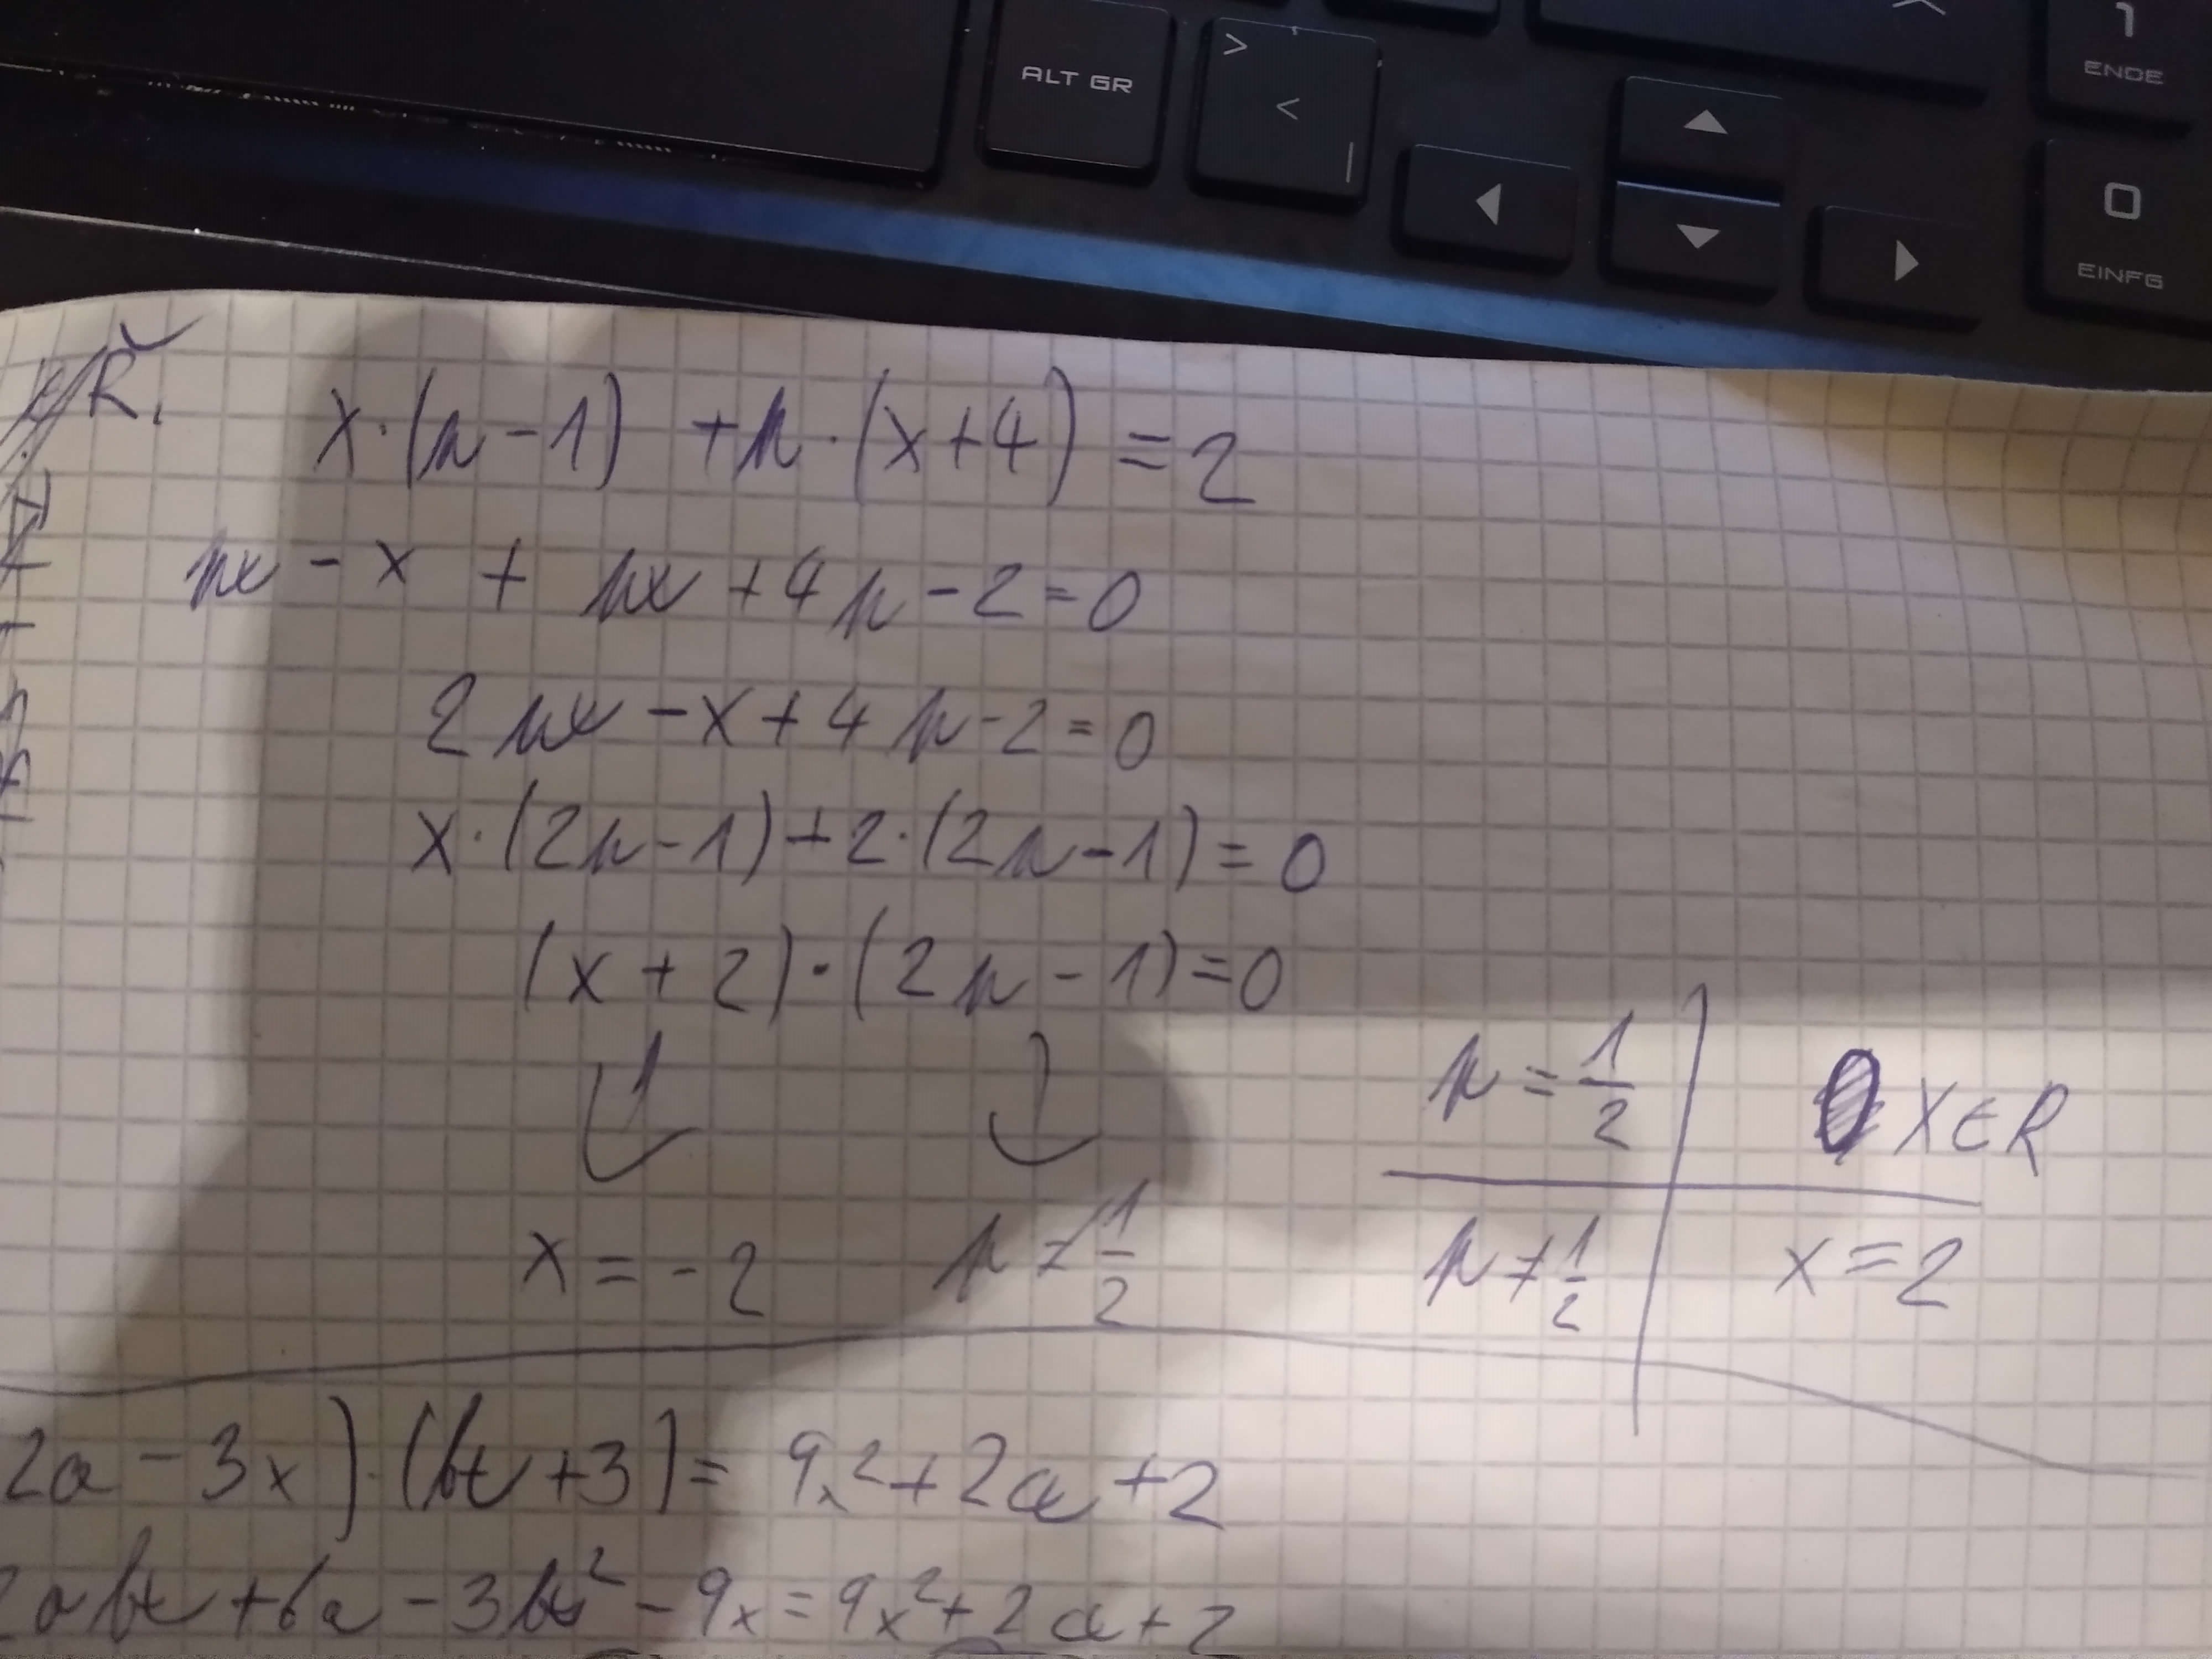 1
ENDE
ALT GR
>
<
|
0
EINFG
R.
x·(n-1) +n·(x+4) =2
nx - x + nx +4n-2=0
2nx -x+4n-2=0
x·(2n-1)+2·(2n-1)=0
(x+2)·(2n-1)=0
n=1/2 x∈R
x=-2 n≠1/2 n≠1/2 x=2
2a-3x)·(bx+3)= 9x²+2a+2
2abx+6a-3bx²-9x=9x²+2a+2